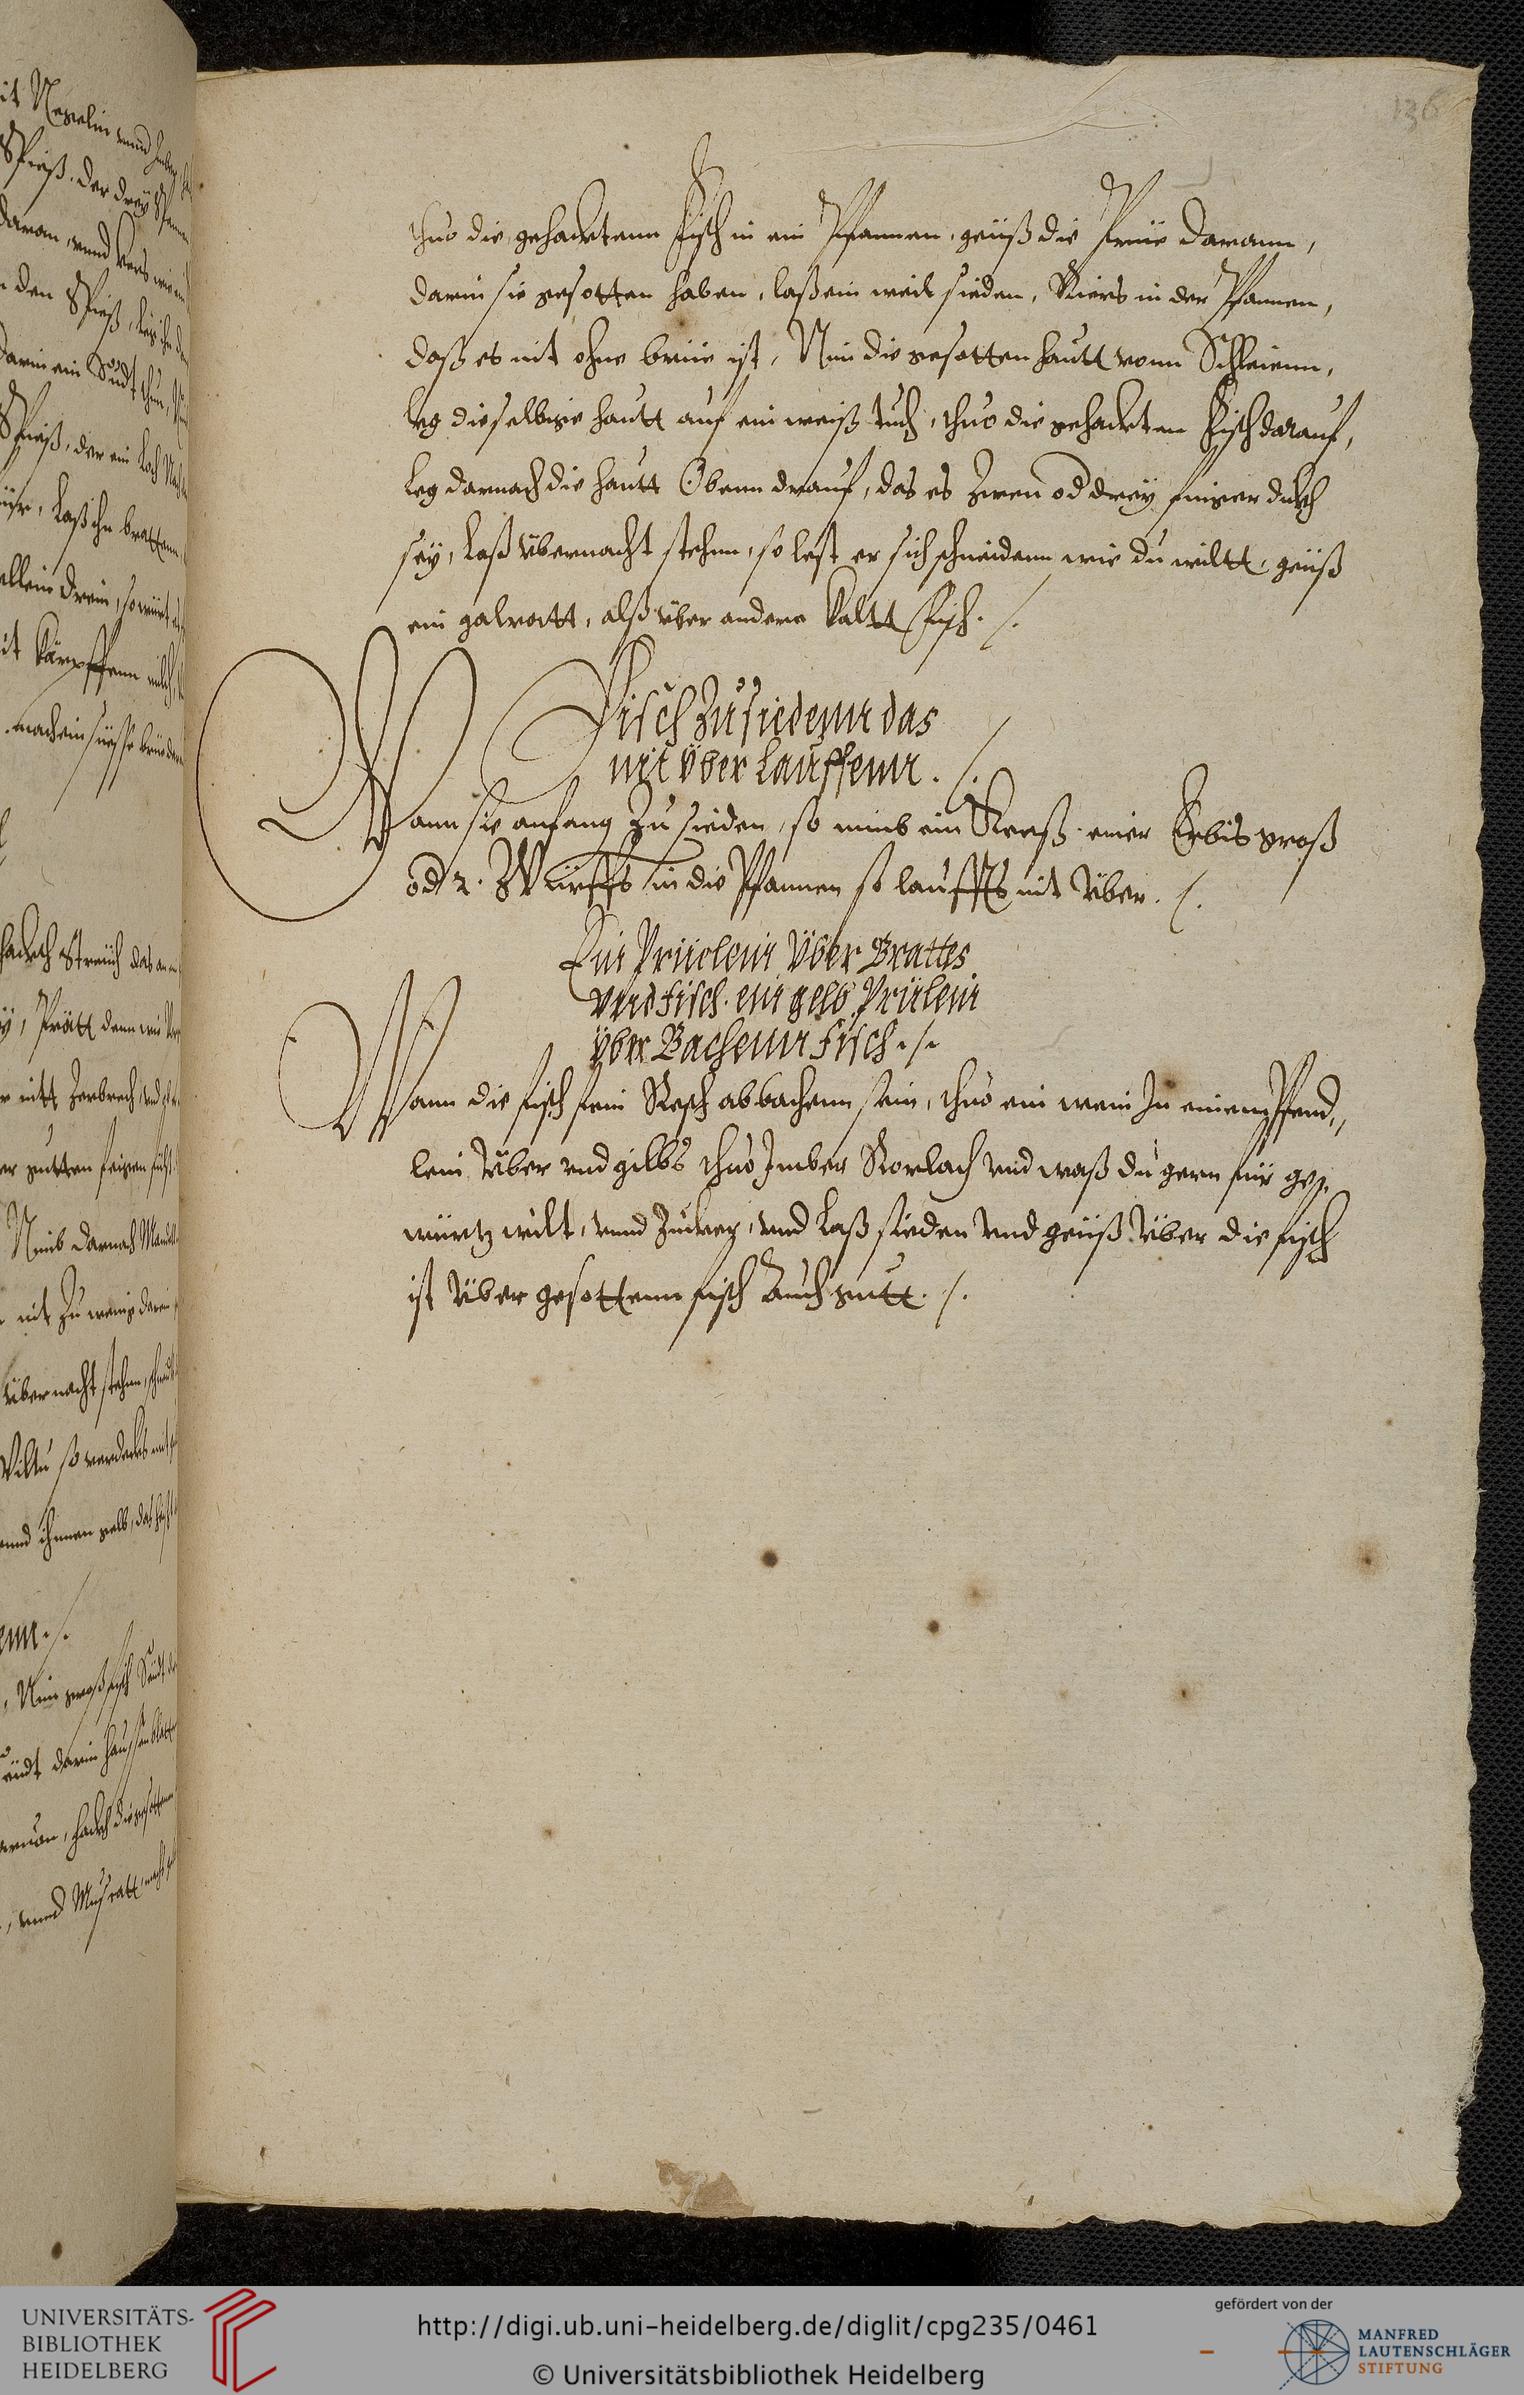 136
thuo die gehacktenn Fisch in ein Pfannen, geüß die Prüe darann,
darin sie gesotten haben, laß ein weil sieden, Riers in der Pfannen,
daß es nit ohne brüe ist, Nim die gesotten hautt vonn Schleienn,
leg dieselbige hautt auf ein weiß tuch, thuo die gehackten Fisch darauf,
leg darnach die hautt Obenn drauf, das es zwen od drey finger dickh
sey, Laß übernacht stehen, so lest er sich schneidenn wie du wiltt, geüß
ein galratt, alß über andere Kaltt Fisch. /.
Fisch zu siedenn das
nit über lauffenn. /.
Wann sie anfang zu sieden, so nimb ein Kreß einer Erbis groß
od 2. Würffs in die Pfannen so lauffts nit über. /.
Ein Prüelein über Brattes
vnd fisch. ein gelb Prüelein
über Bachenn fisch. /.
Wann die fisch fein Resch abbachenn sein, thuo ein wein In einem Pfend„
lein über vnd gilbs thuo Imber Rorlach vnd waß du gern für ge„
würtz wilt, vnnd Zucker, vnd Laß sieden vnd geüß über die fisch
ist über gesottenn fisch Auch gutt. /.
UNIVERSITÄTS-
BIBLIOTHEK
HEIDELBERG
http://digi.ub.uni-heidelberg.de/diglit/cpg235/0461
© Universitätsbibliothek Heidelberg
gefördert von der
MANFRED
LAUTENSCHLÄGER
STIFTUNG